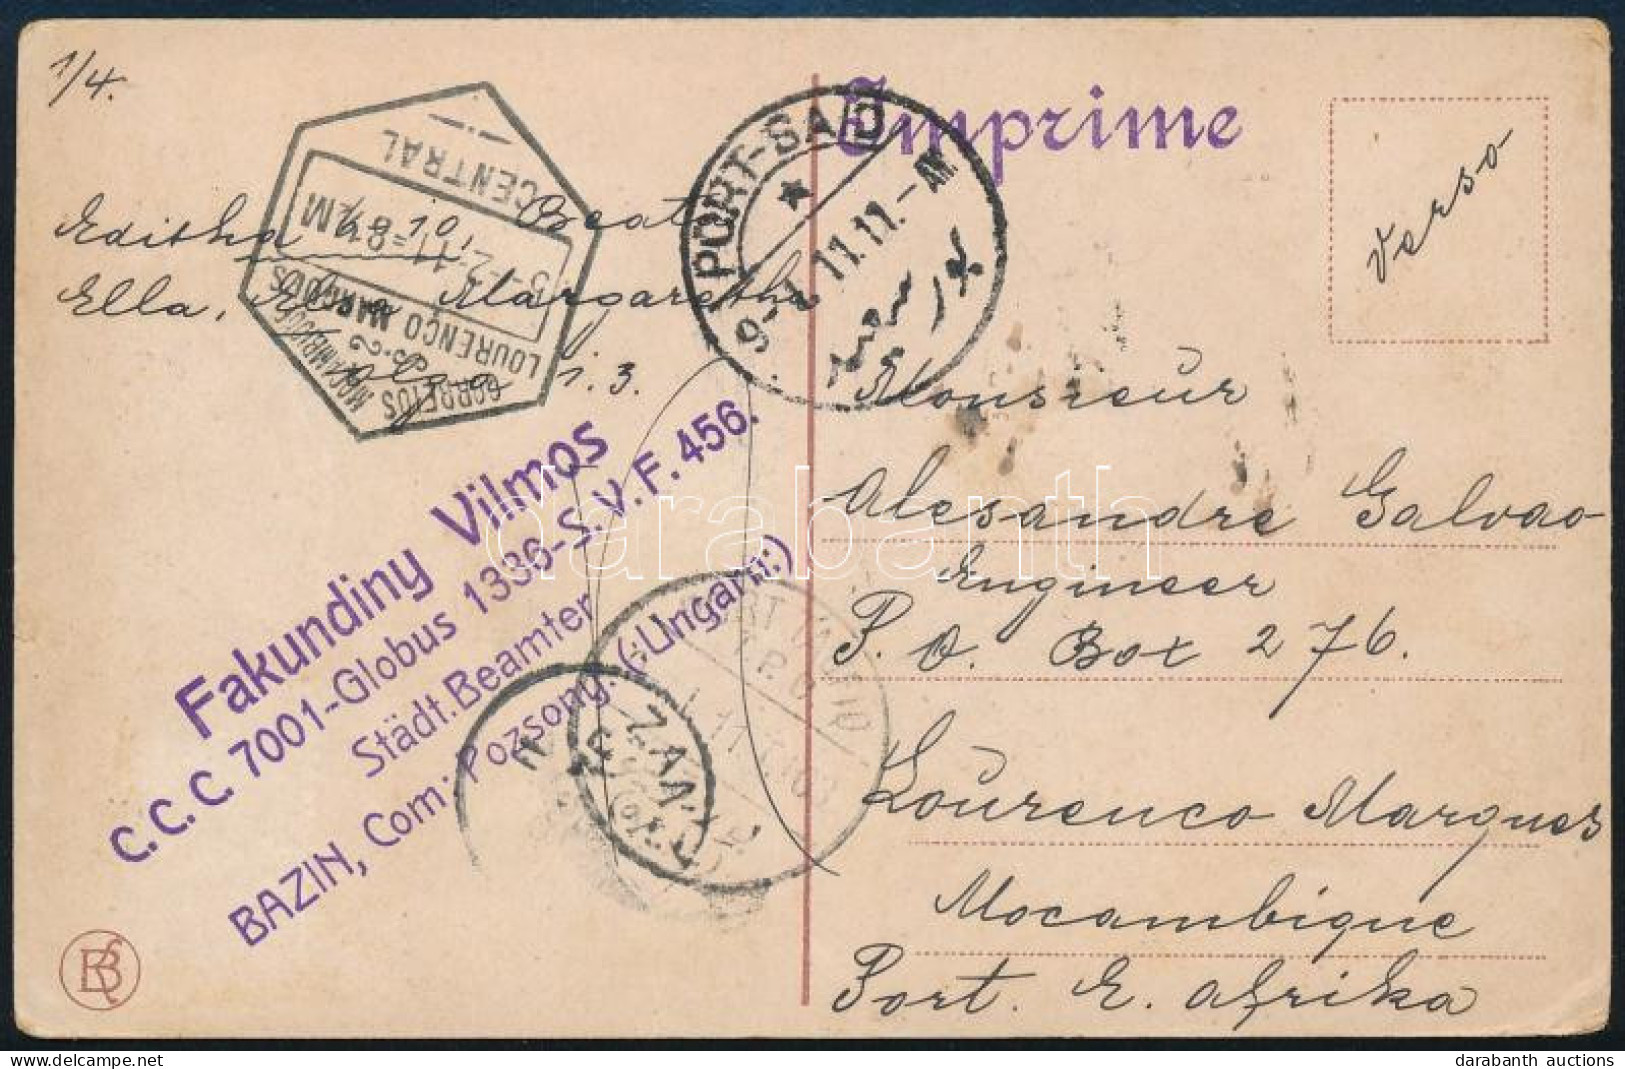 1/4.
Imprime
Verso
PORT-SAID
9-1 11.11.-AM
بور سعيد
CENTRAL
3-2-11=8½M
LOURENÇO MARQUES
CORREIOS
MOÇAMBIQUE
Editha
Beat
Ella,
Margaretha
1.3.
Fakundiny Vilmos
C.C.C. 7001-Globus 1336-S.V.F. 456.
Städt. Beamter
BAZIN, Com: Pozsony. (:Ungarn:)
Monsieur
Alesandre Galvao
Engineer
P. O. Box 276.
Lourenco Marques
Mocambique
Port. E. Afrika
ZAN
BS
darabanth
darabanth auctions